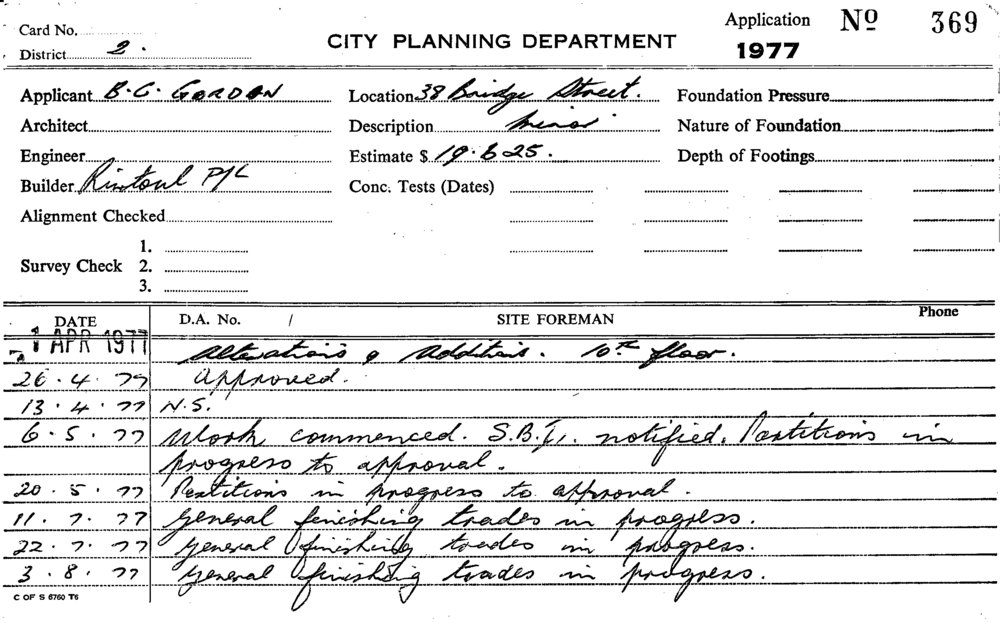 Card No.
District 2.
CITY PLANNING DEPARTMENT
Application No 369
1977
Applicant B.C. GORDON Location 38 Bridge Street. Foundation Pressure
Architect Description Minor Nature of Foundation
Engineer Estimate $ 19.625. Depth of Footings
Builder Rintoul P/L Conc. Tests (Dates)
Alignment Checked
1.
Survey Check 2.
3.
DATE D.A. No. / SITE FOREMAN Phone
1 APR 1977 Alterations & Additions. 10th floor.
26.4.77 Approved.
13.4.77 N.S.
6.5.77 Work commenced. S.B.I. notified. Partitions in
progress to approval.
20.5.77 Partitions in progress to approval.
11.7.77 General finishing trades in progress.
22.7.77 General finishing trades in progress.
3.8.77 General finishing trades in progress.
C OF S 6760 T6